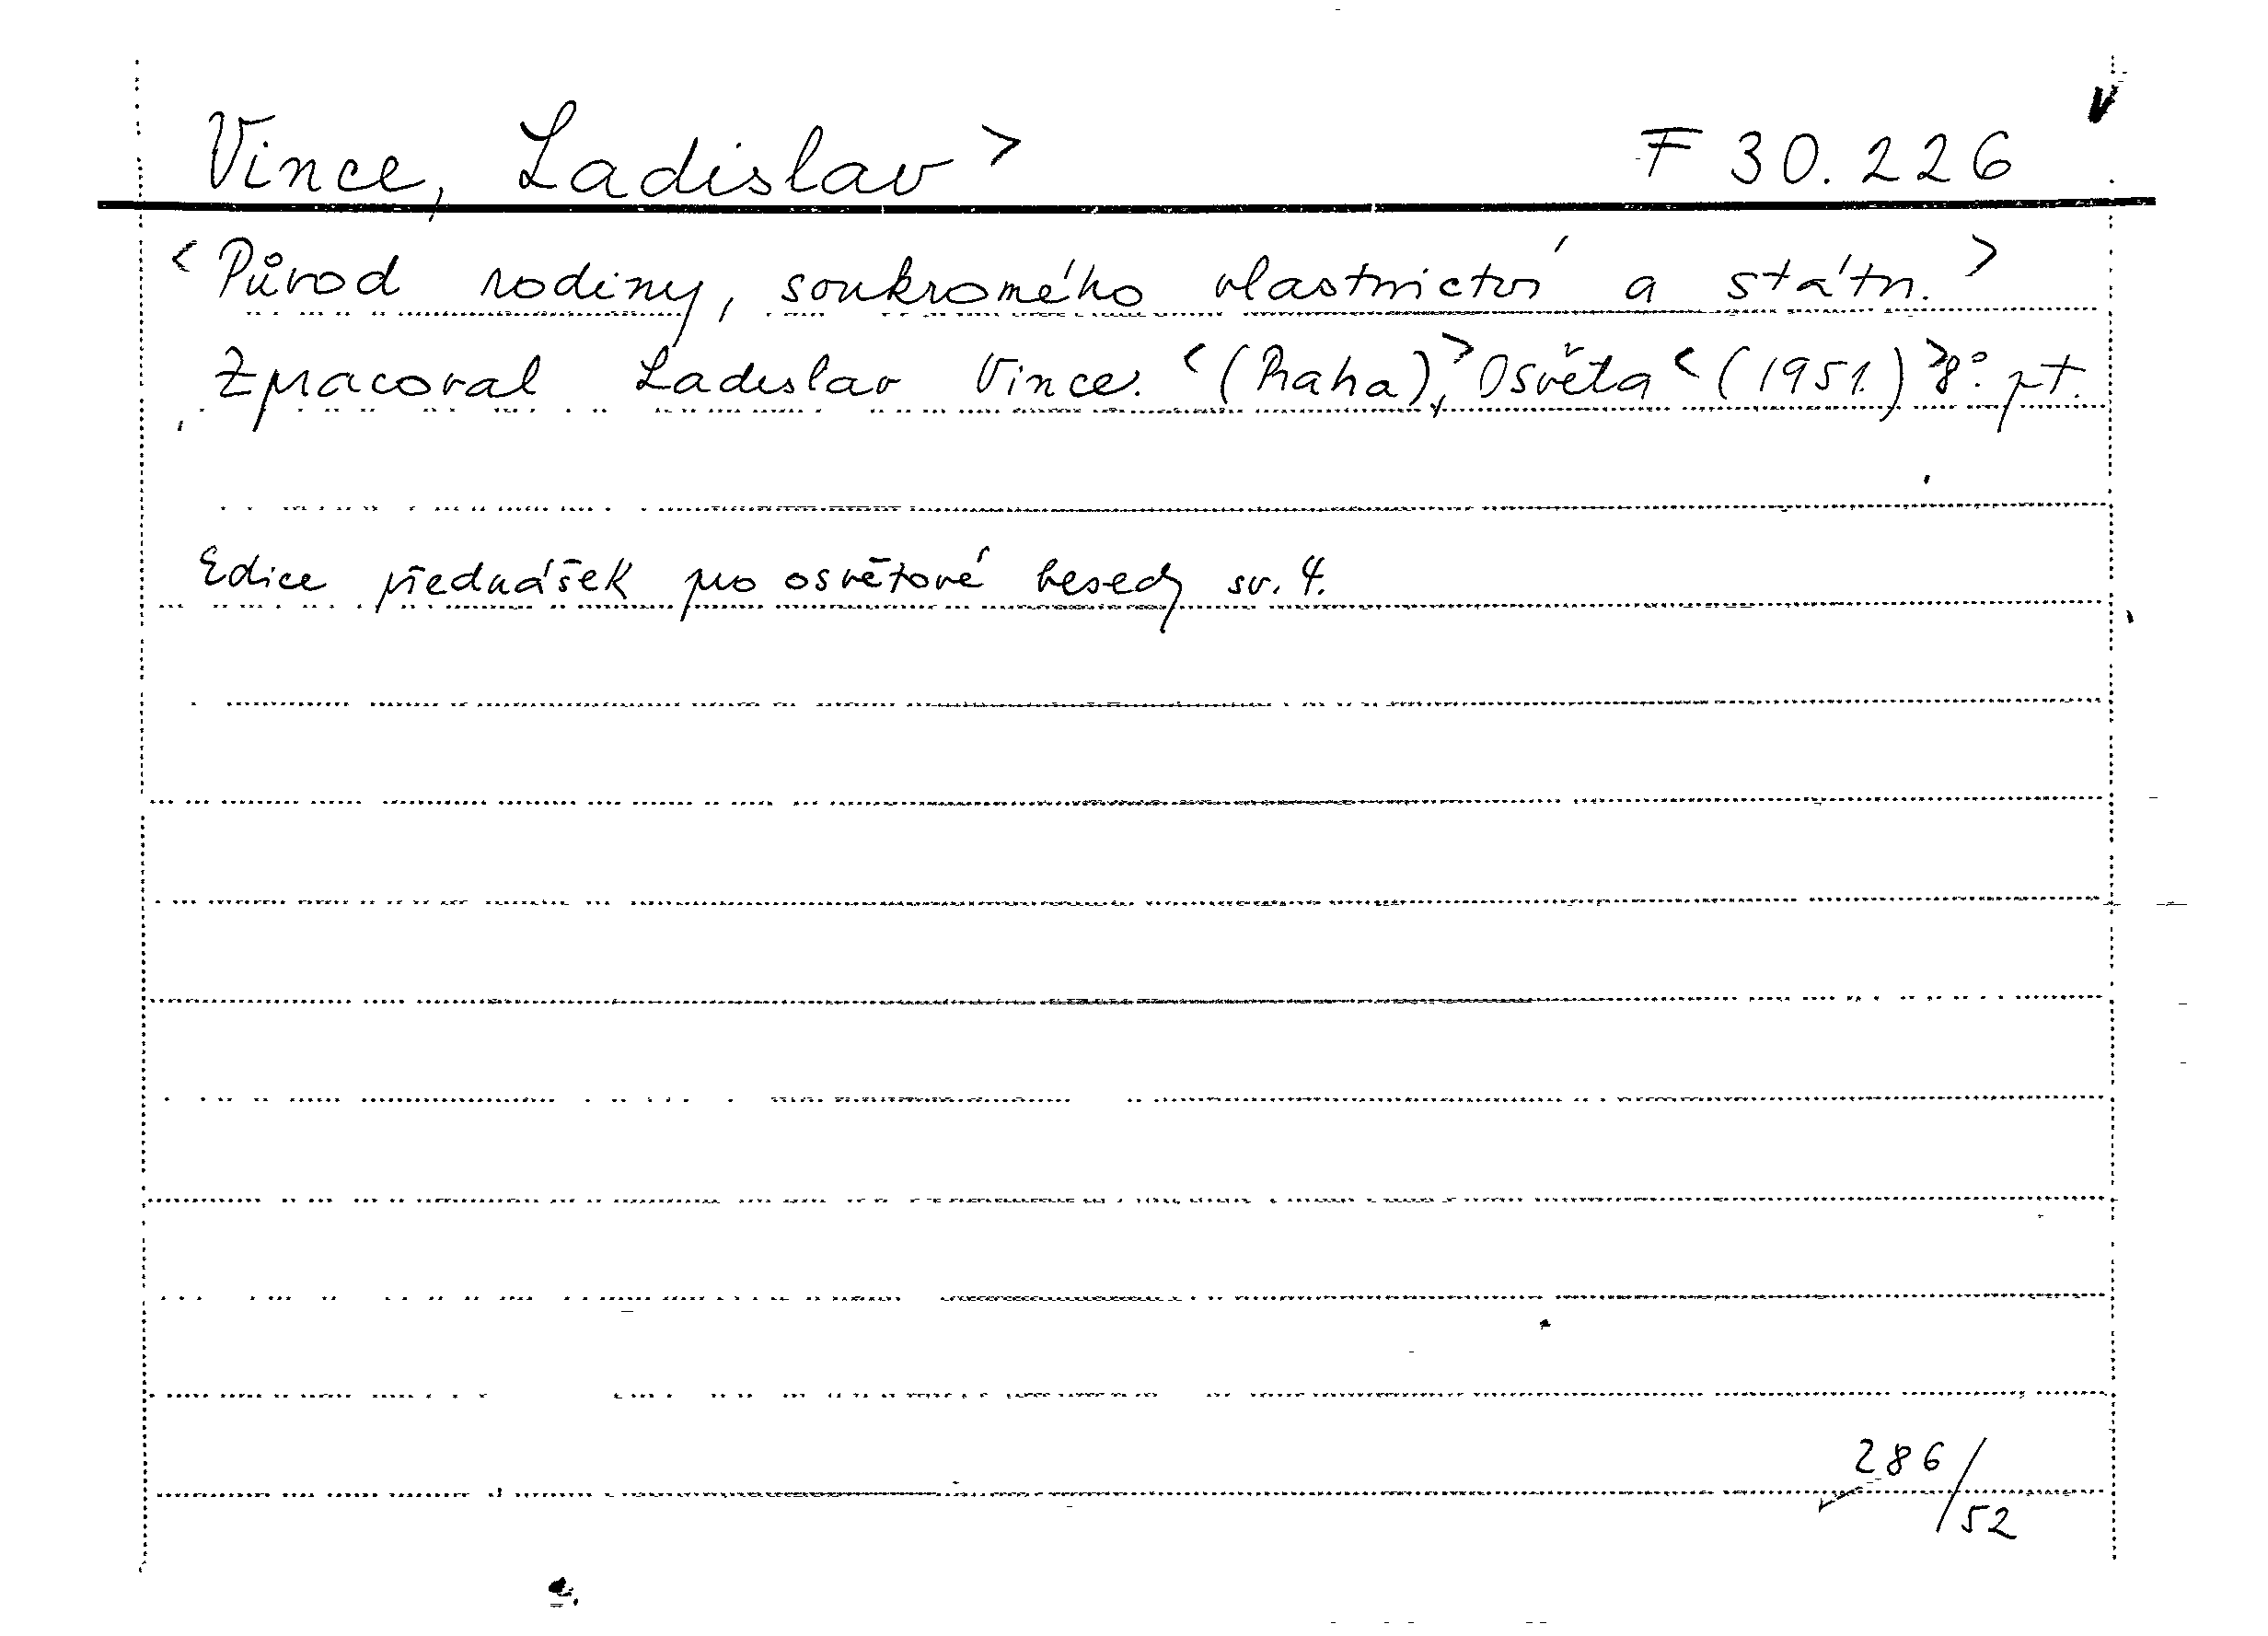 Vince, Ladislav> F 30.226
<Původ rodiny, soukromého vlastnictví a státu.>
Zpracoval Ladislav Vince. <(Praha),> Osvěta <(1951.)> 8° pt.
Edice přednášek pro osvětové besedy sv. 4.
286/52